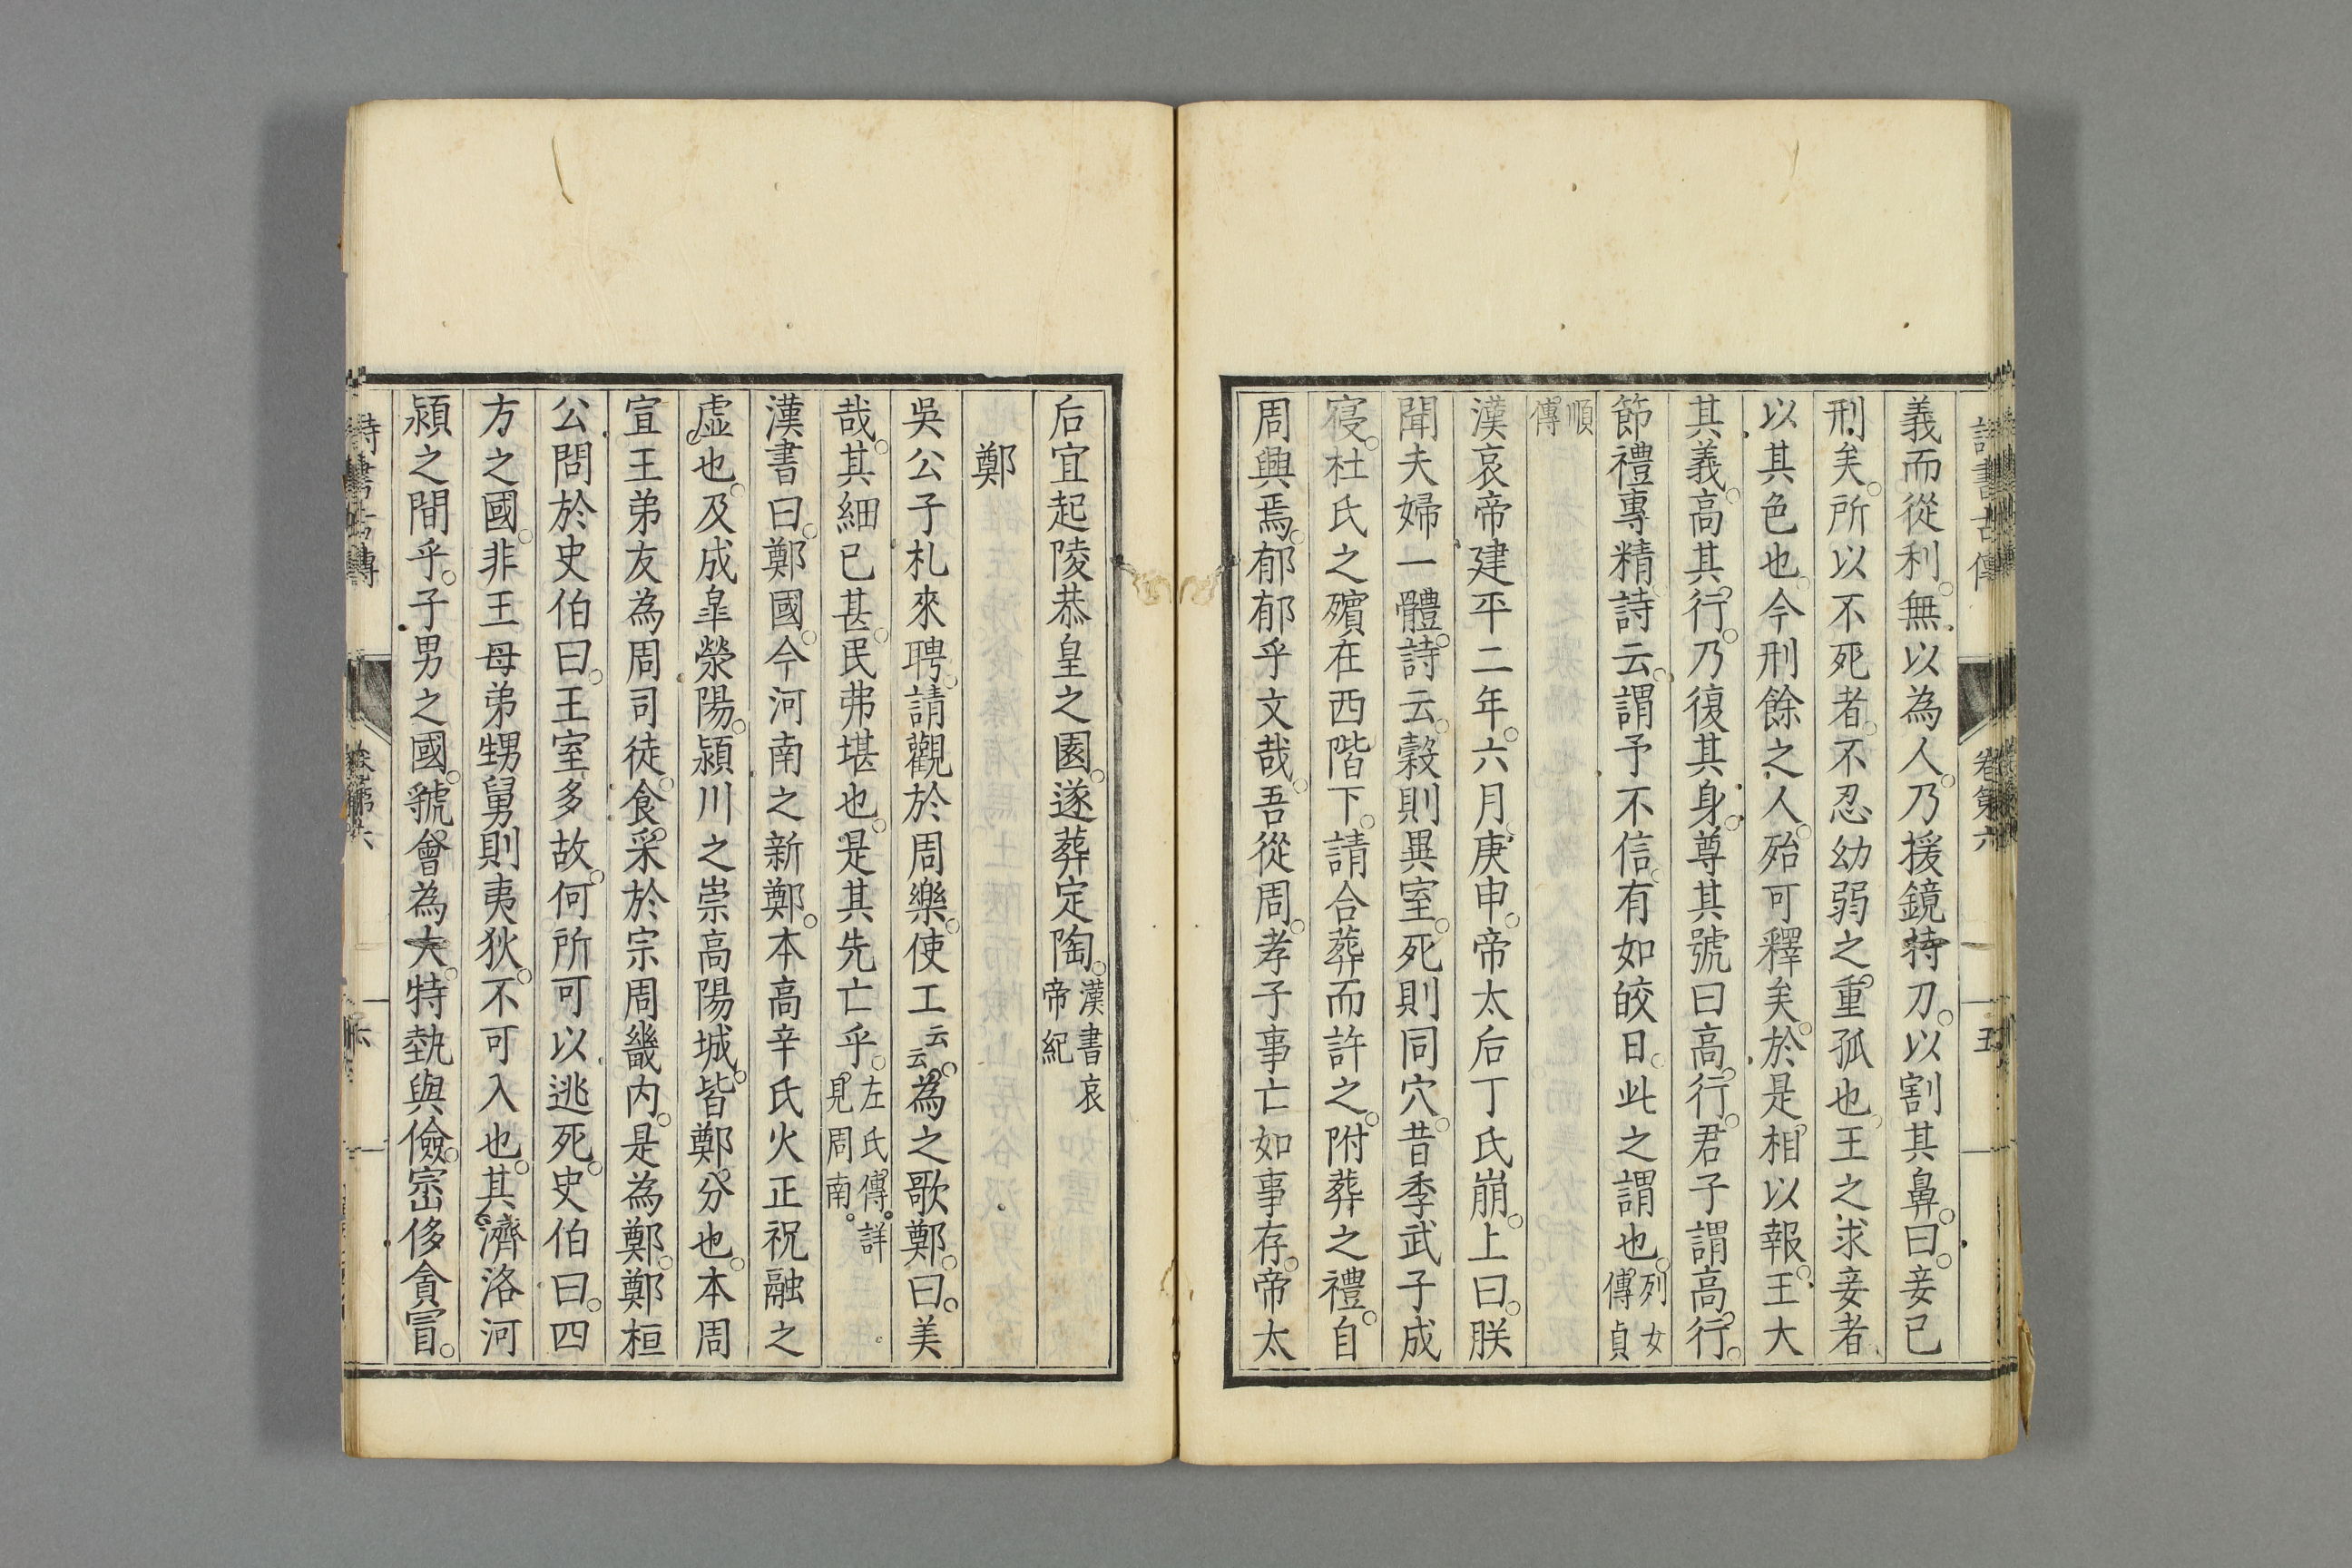 詩書古傳 卷第六 五
義而從利。無以為人。乃援鏡持刀。以割其鼻。曰。妾已
刑矣。所以不死者。不忍幼弱之重孤也。王之求妾者
以其色也。今刑餘之人。殆可釋矣。於是相以報。王大
其義。高其行。乃復其身。尊其號曰高行。君子謂高行。
節禮專精。詩云。謂予不信。有如皎日。此之謂也。列女傳貞
順傳
漢哀帝建平二年。六月庚申。帝太后丁氏崩。上曰。朕
聞夫婦一體。詩云。穀則異室。死則同穴。昔季武子成
寢。杜氏之殯在西階下。請合葬而許之。附葬之禮。自
周興焉。郁郁乎文哉。吾從周。孝子事亡如事存。帝太
后宜起陵恭皇之園。遂葬定陶。漢書哀帝紀
鄭
吳公子札來聘。請觀於周樂。使工云云。為之歌鄭。曰。美
哉。其細已甚。民弗堪也。是其先亡乎。左氏傳。詳見周南。
漢書曰。鄭國。今河南之新鄭。本高辛氏火正祝融之
虛也。及成皐滎陽。潁川之崇高陽城。皆鄭分也。本周
宣王弟友為周司徒。食采於宗周畿内。是為鄭。鄭桓
公問於史伯曰。王室多故。何所可以逃死。史伯曰。四
方之國。非王母弟甥舅則夷狄。不可入也。其濟洛河
潁之間乎。子男之國。虢會為大。特埶與儉。崈侈貪冒。
詩書古傳 卷第六 六